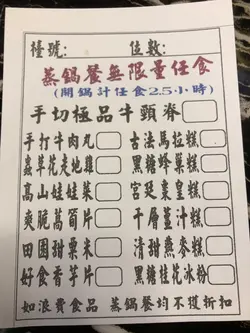 檯號: 位數:
蒸鍋餐無限量任食
(開鍋計任食2.5小時)
手切極品牛頸脊
手打牛肉丸 古法馬拉糕
蟲草花走地雞 黑糖蜂巢糕
高山娃娃菜 宮廷棗皇糕
爽脆萵筍片 千層薑汁糕
田園甜粟米 清甜燕麥糕
好食香芋片 黑糖桂花冰粉
如浪費食品 蒸鍋餐均不獲折扣